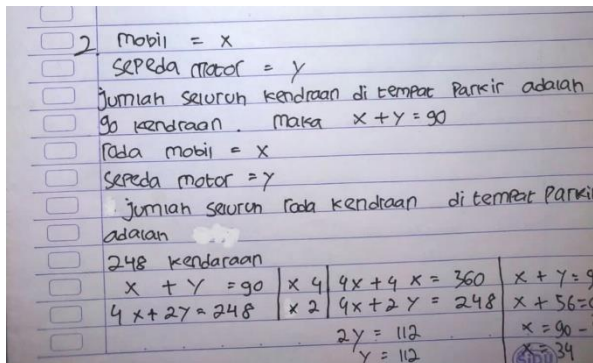 2. mobil = x
sepeda motor = y
jumlah seluruh kendraan di tempat parkir adalah
90 kendraan. maka x + y = 90
roda mobil = x
sepeda motor = y
jumlah seluruh roda kendraan di tempat parki
adalah
248 kendaraan
x + y = 90 | x 4 | 4x + 4 x = 360 | x + y = 9
4x + 2y = 248 | x 2 | 4x + 2 y = 248 | x + 56 =
2y = 112 | x = 90 -
y = 112 | x = 34